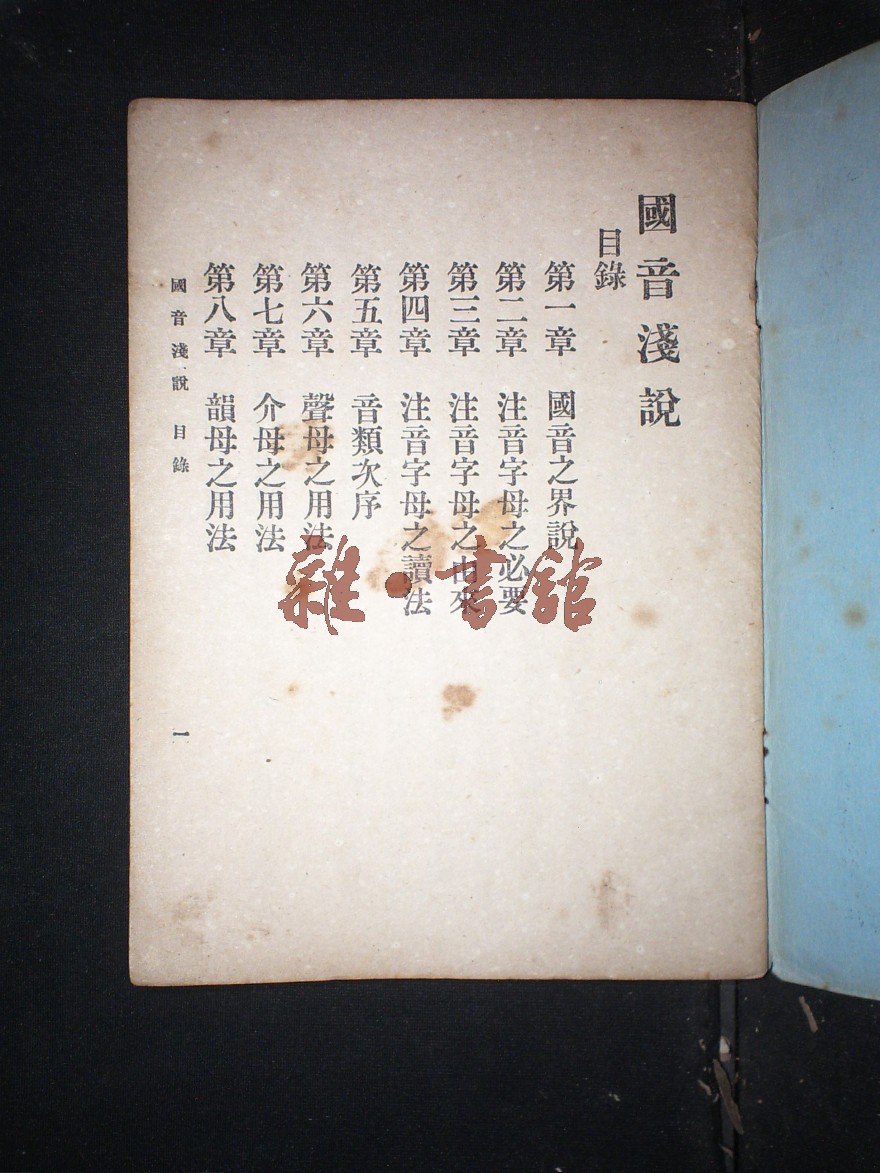 國音淺說
目錄
第一章 國音之界說
第二章 注音字母之必要
第三章 注音字母之由來
第四章 注音字母之讀法
第五章 音類次序
第六章 聲母之用法
第七章 介母之用法
第八章 韻母之用法
國音淺說 目錄 一
雜·書館